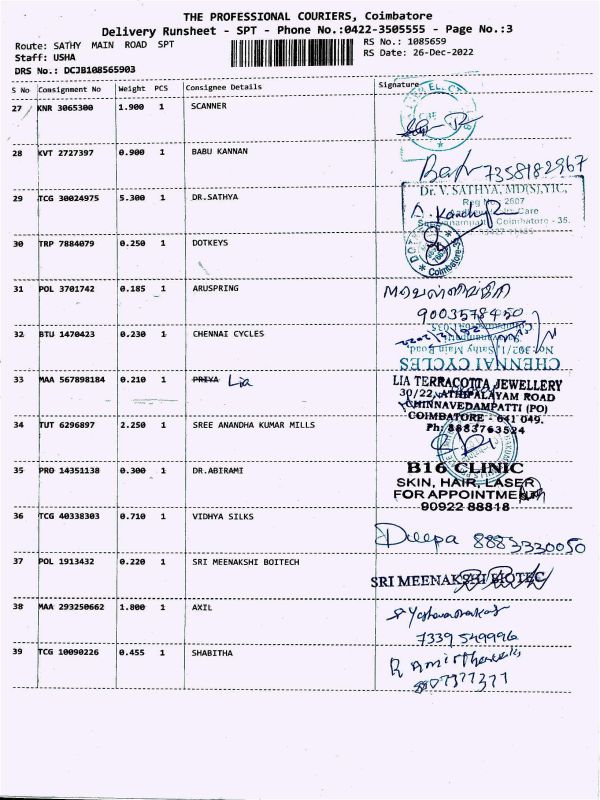 THE PROFESSIONAL COURIERS, Coimbatore
Delivery Runsheet - SPT - Phone No.:0422-3505555 - Page No.:3
Route: SATHY MAIN ROAD SPT
RS No.: 1085659
Staff: USHA
RS Date: 26-Dec-2022
DRS No.: DCJB108565903
S No Consignment No Weight PCS Consignee Details Signature
27 KNR 3065300 1.900 1 SCANNER
28 KVT 2727397 0.900 1 BABU KANNAN
Babu 7358182967
29 TCG 30024975 5.300 1 DR.SATHYA
Dr. V. SATHYA, MD(S),YIC,
Coimbatore - 35.
30 TRP 7884079 0.250 1 DOTKEYS
Coimbatore
31 POL 3701742 0.185 1 ARUSPRING
9003578450
32 BTU 1470423 0.230 1 CHENNAI CYCLES
No: 392/1, Sathy Main Road
CHENNAI CYCLES
33 MAA 567898184 0.210 1 PRIYA Lia
LIA TERRACOTTA JEWELLERY
30/22, ATHIPALAYAM ROAD
CHINNAVEDAMPATTI (PO)
COIMBATORE - 641 049.
Ph: 8883763524
34 TUT 6296897 2.250 1 SREE ANANDHA KUMAR MILLS
35 PRO 14351138 0.300 1 DR.ABIRAMI
B16 CLINIC
SKIN, HAIR, LASER
FOR APPOINTMENT
90922 88818
36 TCG 40338303 0.710 1 VIDHYA SILKS
Deepa 8883330050
37 POL 1913432 0.220 1 SRI MEENAKSHI BOITECH
SRI MEENAKSHI BIOTEC
38 MAA 293250662 1.800 1 AXIL
7339549996
39 TCG 10090226 0.455 1 SHABITHA